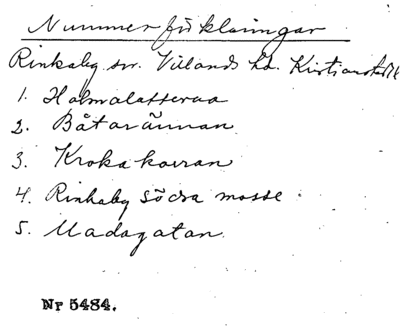 Nummerförklaringar
Rinkaby sn. Villands hd. Kristianstads l.
1.
2. Båtarännan
3. Krokakärran
4. Rinkaby södra mosse
5. Madagatan
Nr 5484.